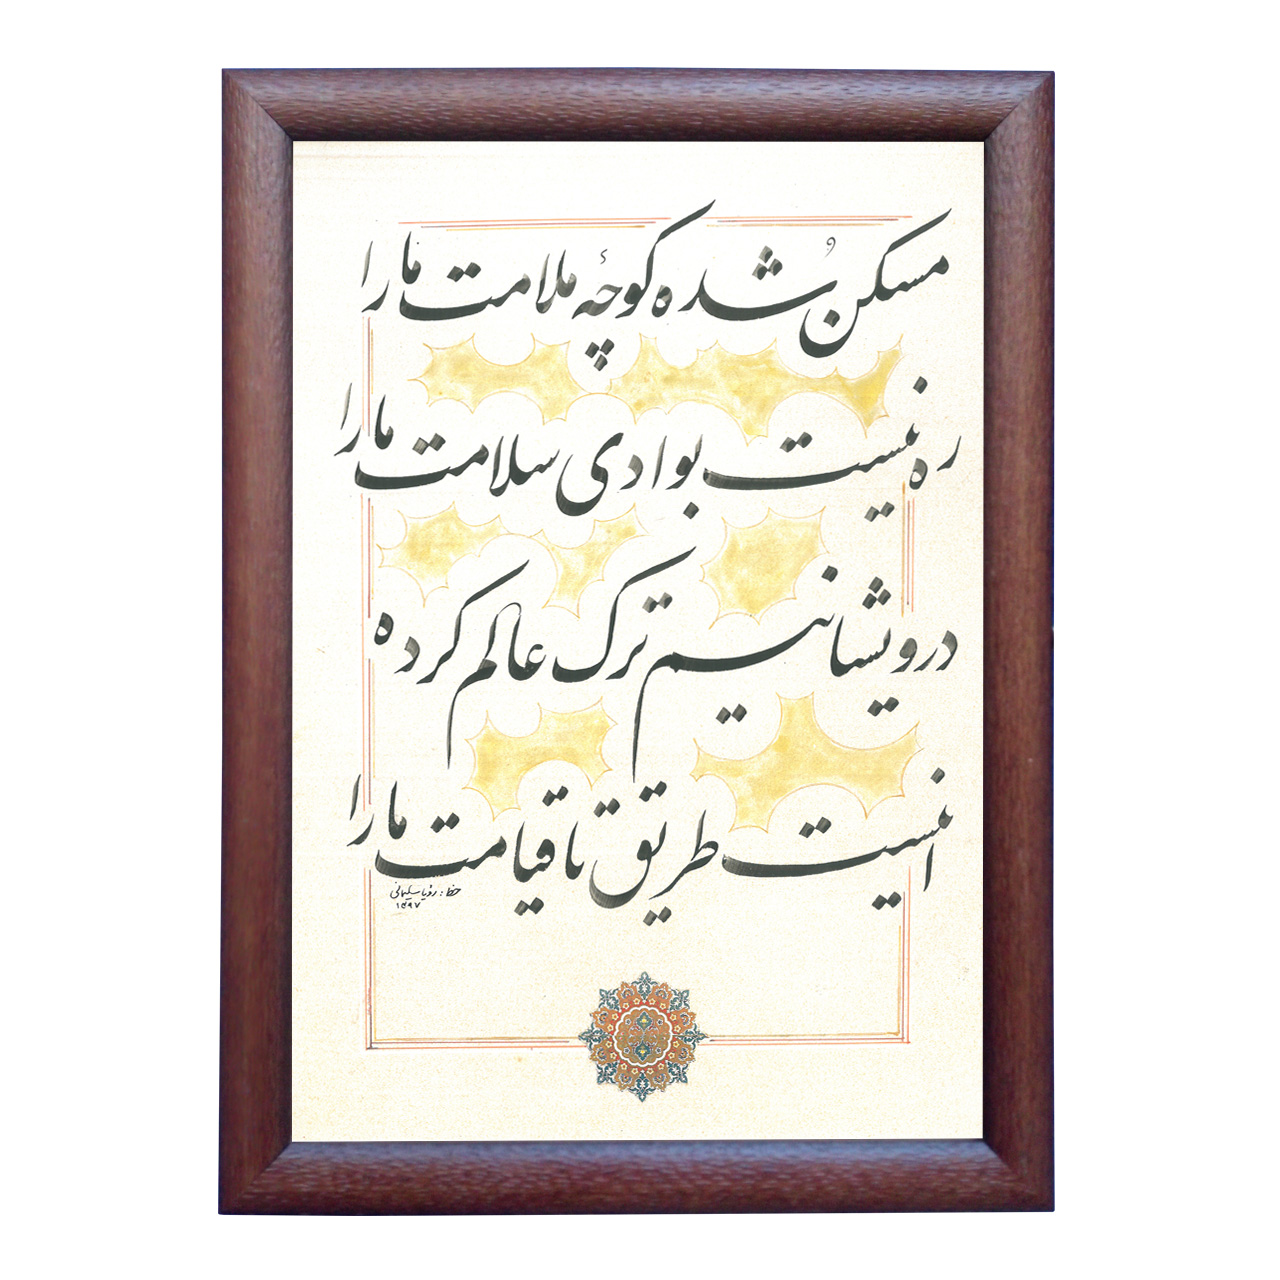 مسکن شده کوچهٔ ملامت ما را
ره نیست بوادی سلامت ما را
درویشانیم ترک عالم کرده
اینست طریق تا قیامت ما را
خط: رؤیا سلیمانی
۱۳۹۷